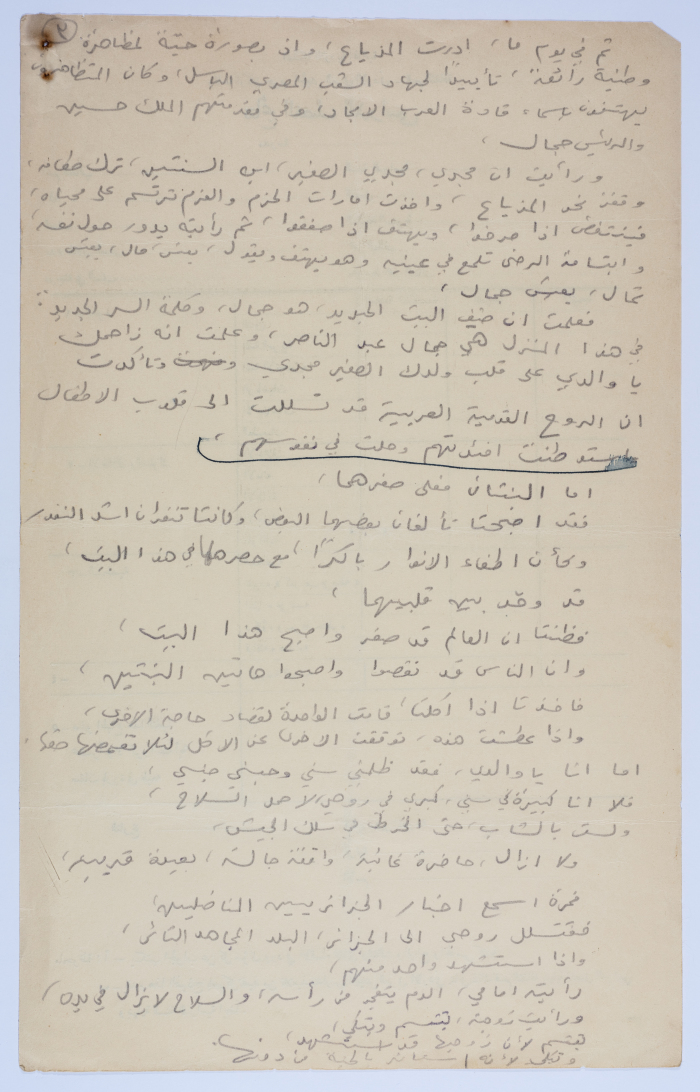 ٣
ثم في يوم ما، ادرت المذياع، واذ بصورة حيّة لمظاهرة
وطنية رائعة، تأييدًا لجهاد الشعب المصري الباسل، وكان المتظاهرون
يهتفون باسماء قادة العرب الامجاد، وفي مقدمتهم الملك حسين
والرئيس جمال،
ورأيت ان مجدي، مجدي الصغير، ابن السنتين، ترك طعامه،
وقفز نحو المذياع، واخذت امارات الحزم والعزم ترتسم على محياه،
فينتفض اذا صرخوا، ويهتف اذا صفقوا، ثم رأيته يدور حول نفسه،
وابتسامة الرضى تلمع في عينيه وهو يهتف ويقول، يعيش مال، يعيش
تمال، يعيش جمال،
فعلمت ان ضيف البيت الجديد، هو جمال، وكلمة السر الجديدة
في هذا المنزل هي جمال عبد الناصر، وعلمت انه زاحمك
يا والدي على قلب ولدك الصغير مجدي وتأكدت
ان الروح القومية العربية قد تسللت الى قلوب الاطفال
واستوطنت افئدتهم وحلت في نفوسهم،
اما البنتان فعلى صغرهما،
فقد اصبحتا تألفان بعضهما البعض، وكانتا تنفران اشد النفور
وكأن اطفاء الانوار باكرًا، مع حصرهما في هذا البيت،
قد وحّد بين قلبيهما،
فظنتا ان العالم قد صغر واصبح هذا البيت،
وان الناس قد نقصوا واصبحوا هاتين البنتين،
فاخذتا اذا اكلتا، قامت الواحدة لقضاء حاجة الاخرى،
واذا عطشت هذه، توقفت الاخرى عن الاكل لئلا تغمضها حقها،
اما انا يا والدي، فقد ظلمني سني وحبسني جنسي،
فلا انا كبيرة في سني، كبري في روحي، لاحمل السلاح،
ولست بالشاب، حتى انخرط في سلك الجيش،
ولا ازال، حاضرة غائبة، واقفة جالسة، بعيدة قريبة،
فمرة اسمع اخبار الجزائريين المناضلين،
فتتسلل روحي الى الجزائر، البلد المجاهد الثائر،
واذا استشهد واحد منهم،
رأيته امامي، الدم يتفجر من رأسه، والسلاح لا يزال في يده،
ورأيت زوجته، تبتسم وتبكي،
تبتسم لأن زوجها قد استشهد،
وتبكي لأنه بالجنة من دونها.